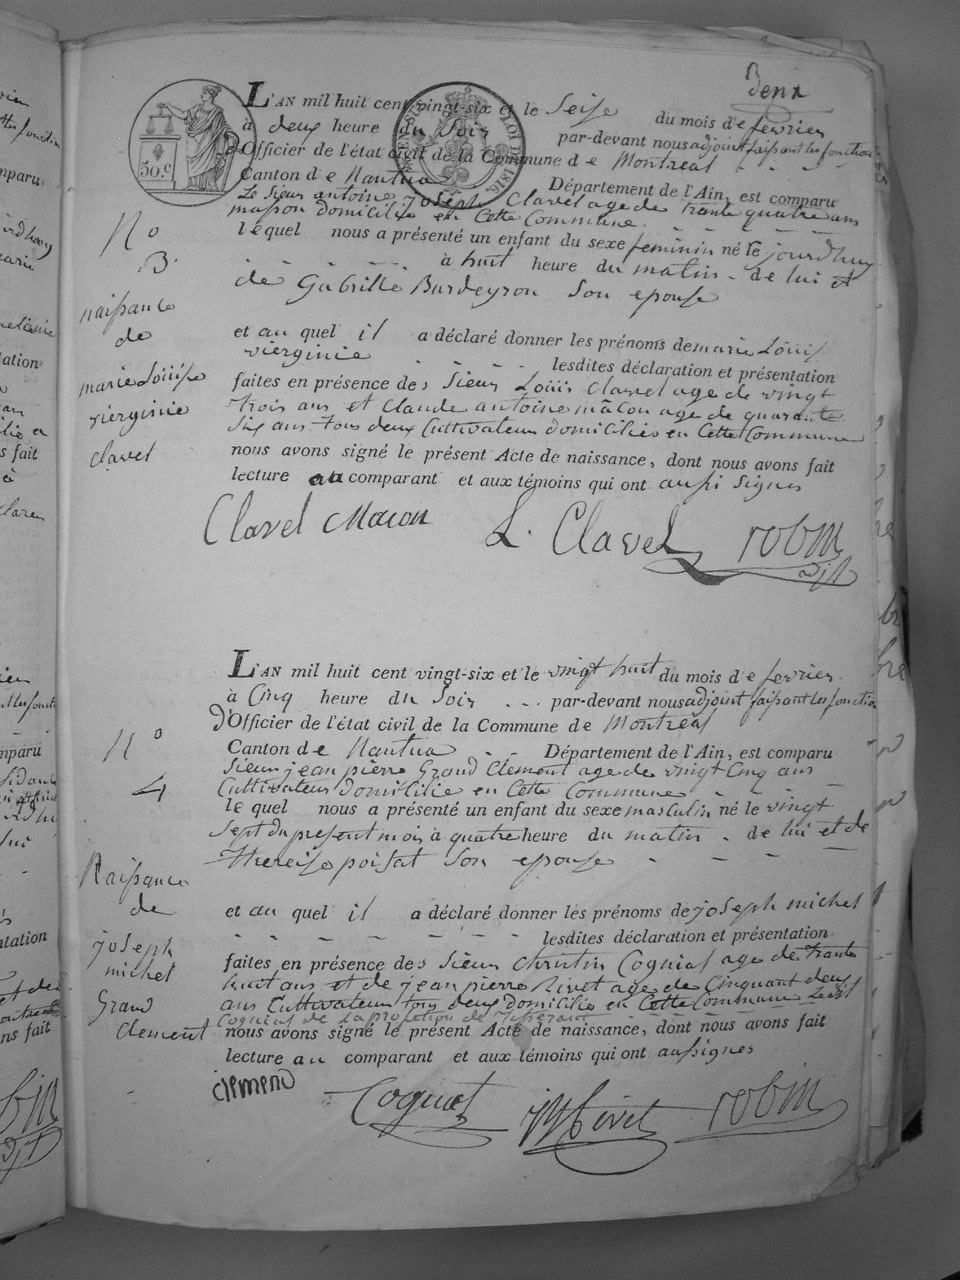 Deux
50.c
LOI DE 1816
L'AN mil huit cent vingt-six et le Seise du mois de fevrier
à deux heure du Soir par-devant nous adjoint faisant les fonction
d'Officier de l'état civil de la Commune de Montreal
Canton de Nantua Département de l'Ain, est comparu
Le Sieur antoine joseph Clavel age de trante quatre ans
masson domicilie en Cette Commune
lequel nous a présenté un enfant du sexe feminin né le jourdhuy
à huit heure du matin de lui et
de Gabrille Burdeyron Son epouse
et au quel il a déclaré donner les prénoms de marie Louis
vierginie lesdites déclaration et présentation
faites en présence des Sieur Louis Clavel age de vingt
trois ans et Claude antoine macon age de quarante
Six ans tous deux Cultivateur domiciliés en Cette Commune
nous avons signé le présent Acte de naissance, dont nous avons fait
lecture au comparant et aux témoins qui ont aussi Signes
N°
3
naissance
de
marie Louise
vierginie
clavel
Clavel Macon L. Clavel robin
adjt
L'AN mil huit cent vingt-six et le vingt huit du mois de fevrier
à Cinq heure du Soir par-devant nous adjoint faisant les fonction
d'Officier de l'état civil de la Commune de Montreal
Canton de Nantua Département de l'Ain, est comparu
Sieur jean pierre Grand Clement age de vingt Cinq ans
Cultivateur domicilie en Cette Commune
le quel nous a présenté un enfant du sexe masculin né le vingt
Sept du present mois à quatre heure du matin de lui et de
thereise poisat Son epouse
et au quel il a déclaré donner les prénoms de joseph michel
lesdites déclaration et présentation
faites en présence des Sieur Cogniat age de trante
huit ans et de jean pierre Rivet age de Cinquant deux
ans Cultivateur tous deux domicilie en Cette Commune
Cogniat de la profession de Tisserant
nous avons signé le présent Acte de naissance, dont nous avons fait
lecture au comparant et aux témoins qui ont aussignes
N°
4
Naissance
de
joseph
michel
Grand
Clement
clement Cogniat Rivet robin